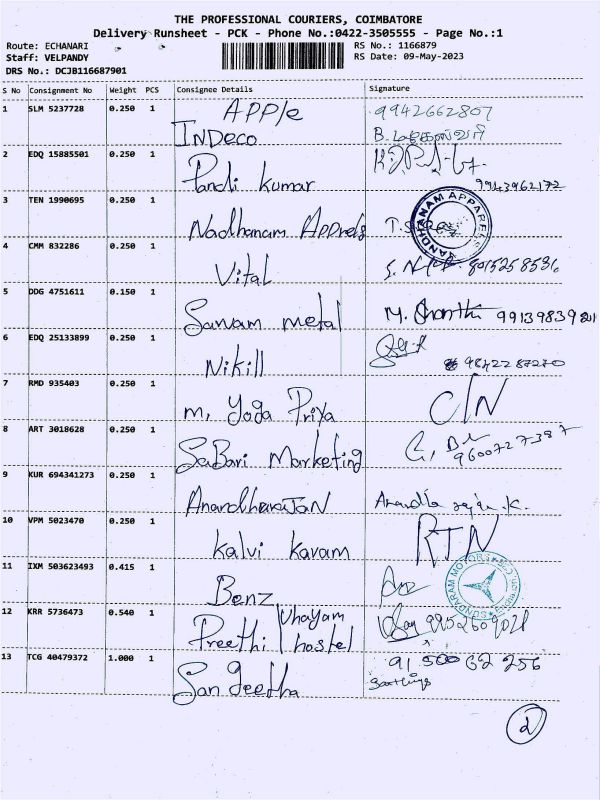 THE PROFESSIONAL COURIERS, COIMBATORE
Delivery Runsheet - PCK - Phone No.:0422-3505555 - Page No.:1
Route: ECHANARI
Staff: VELPANDY
DRS No.: DCJB116687901
RS No.: 1166879
RS Date: 09-May-2023
S No Consignment No Weight PCS Consignee Details Signature
1 SLM 5237728 0.250 1 APPle 9942662807
INDeco B. மகேஸ்வரி
2 EDQ 15885501 0.250 1
Pandi Kumar 9943962172
3 TEN 1990695 0.250 1
Nadhanam Apprels NANDHANAM APPARELS
4 CMM 832286 0.250 1
Vital 8015258536
5 DDG 4751611 0.150 1
Sanam metal M. Shanthi
6 EDQ 25133899 0.250 1
Nikill 9842287270
7 RMD 935403 0.250 1
m, Yoga Priya C/N
8 ART 3018628 0.250 1
SaBari Marketing 9600727387
9 KUR 694341273 0.250 1
AnandharaJAN
10 VPM 5023470 0.250 1 RTN
Kalvi Kavam
11 IXM 503623493 0.415 1
Benz SUNDARAM MOTORS
12 KRR 5736473 0.540 1
Preethi hostel 9952609021
13 TCG 40479372 1.000 1 91 500 62 256
Sangeetha
2